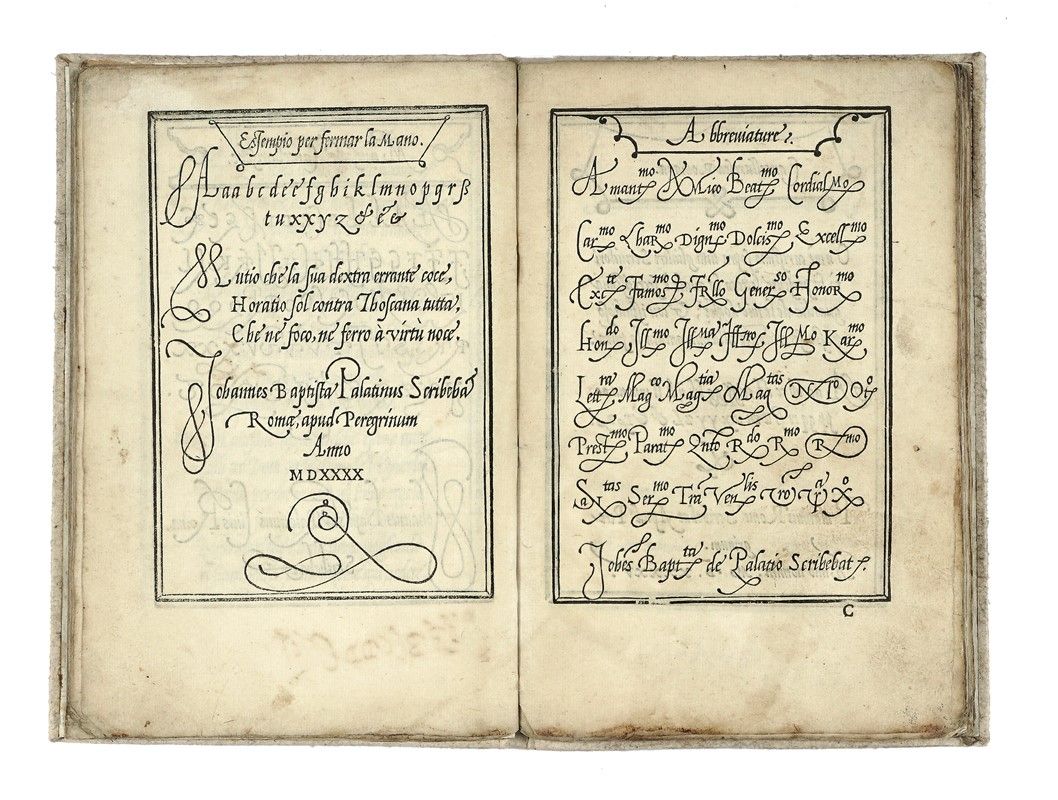 Essempio per fermar la Mano.
A a a b c d e e f g h i k l m n o p q r s ß
t u x x y z & e &
Mutio che la sua dextra errante coce,
Horatio sol contra Thoscana tutta,
Che ne foco, ne ferro à virtu noce.
Iohannes Baptista Palatinus Scribebat
Romæ, apud Peregrinum
Anno
MDXXXX
Abbreviature.
Amant.mo Amico Beat.mo Cordial.mo
Car.mo Chār.mo Dign.mo Dolcis.mo Excell.mo
Ex.te Famos.mo Frllo Gener.so Honor.mo
Hon.do Ill.mo Ill.ma Ill.mo Kar.mo
Lett.ra Mag.co Mag.tia Maq.tas N.ro
Prest.mo Parat.mo Qnto R.do R.mo R.mo
S.tas Ser.mo Trā Ven.lis Vro
Johēs Bapt.ta de Palatio Scribebat.
C